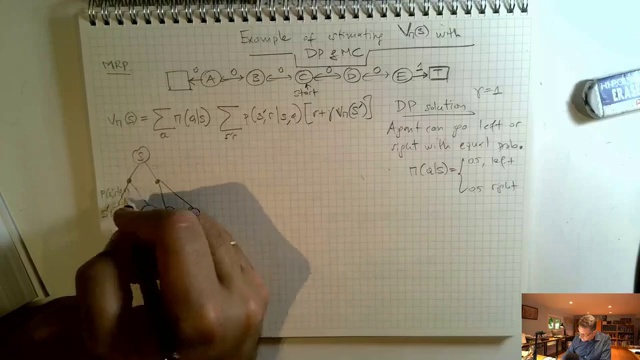 Example of estimating Vπ(s) with
DP & MC
MRP
0 A 0 B 0 C 0 D 0 E 1 T
start
Vπ(s) = Σa π(a|s) Σs'r p(s',r|s,a) [r+γVπ(s')]
DP solution γ=1
Agent can go left or
right with equal prob.
π(a|s)= { 0.5, left
0.5 right
S
ERAS